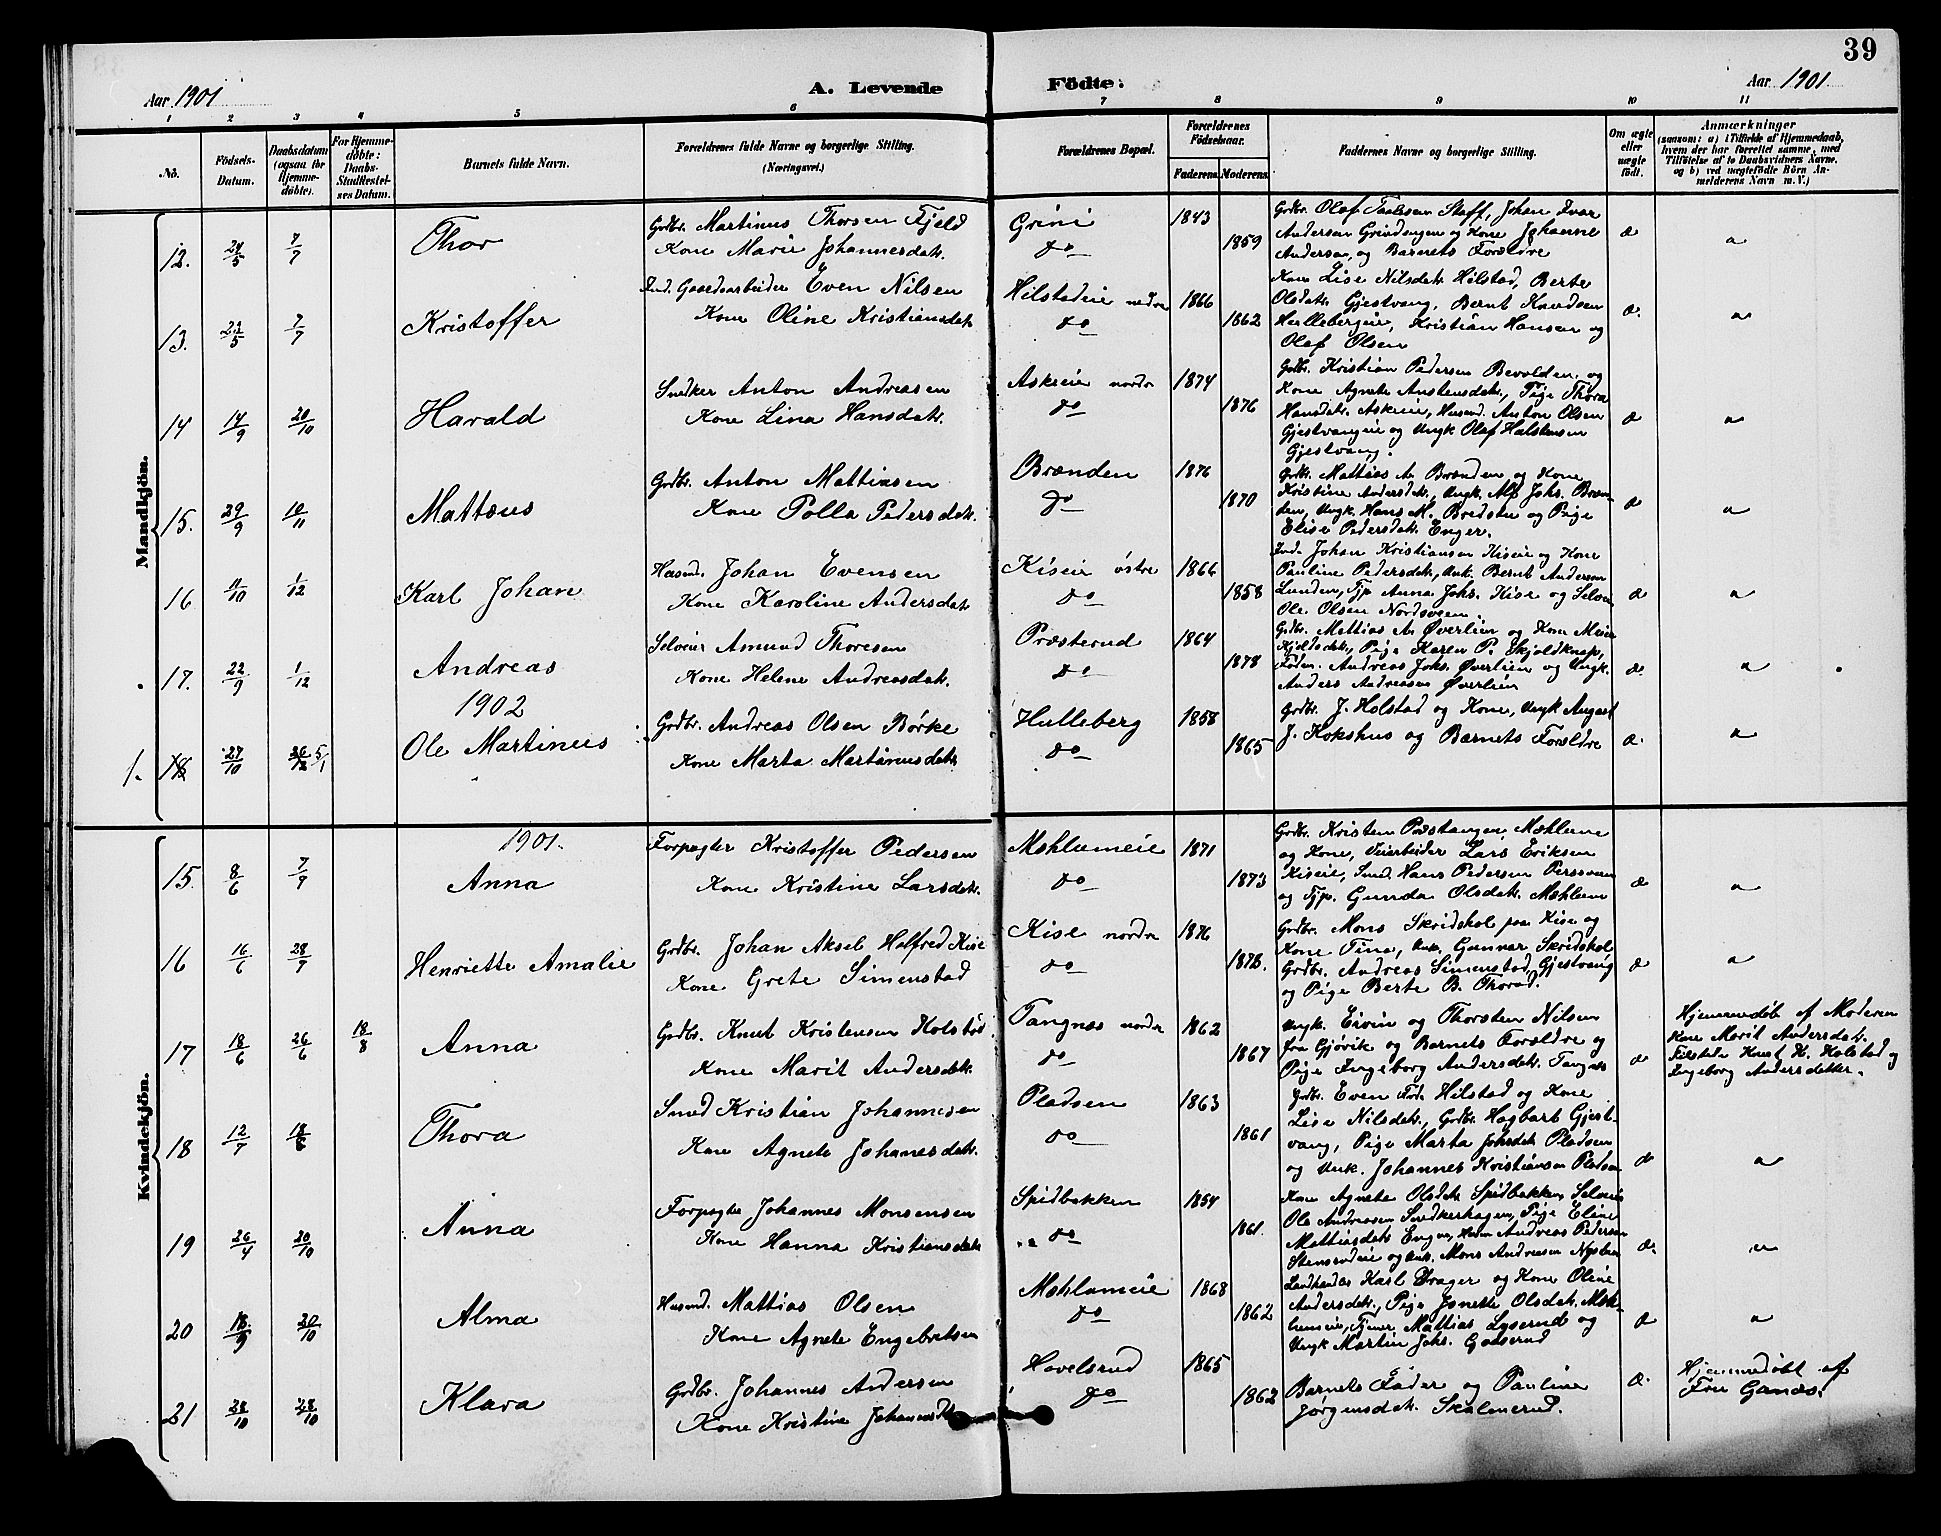 39
Aar 1901
A. Levende Födte.
Aar 1901
1 2 3 4 5 6 7 8 9 10 11
No.
Födsels-Datum.
Daabsdatum (ogsaa for Hjemmedøbte).
For Hjemmedøbte: Daabs-Stadfæstelses Datum.
Barnets fulde Navn.
Forældrenes fulde Navne og borgerlige Stilling. (Næringsvei.)
Forældrenes Bopæl.
Forældrenes Födselsaar.
Faderens. Moderens.
Faddernes Navne og borgerlige Stilling.
Om ægte eller uægte født.
Anmærkninger
(saasom: a) i Tilfælde af Hjemmedaab, hvem der har forrettet samme, med Tilföielse af to Daabsvidners Navne, og b) ved uægtefödte Börn Anmelderens Navn m. V.)
Mandkjön.
12. 24/5 7/7 Thor
Grdbr. Martinus Thorsen Fjeld
Kone Marie Johannesdatr.
Grini
do
1843
1859
Grdbr. Olaf Paulssen Staff, Johan Ivar
Andersen Grindengen og Kone Johanne
Andersen, og Barnets Forældre
æ
13. 23/5 7/7 Kristoffer
Ind. Gaardsarbeider Even Nilsen
Kone Oline Kristiansdatr
Hilstadeie nedre
do
1866
1862
Kone Lise Nilsdatr Hilstad, Berte
Olsdatr. Gjestvang, Bernt Knudsen
Hullebergeie, Kristian Hansen og
Olaf Olsen
æ.
14 14/9 20/10 Harald
Snedker Anton Andreasen
Kone Lina Hansdatr.
Askreie nordre
do
1874
1876
Grdbr. Kristian Pedersen Bevolden og
Kone Agnete Anstensdatr., Pige Thora
Hansdatr. Askreie, Husmd. Anton Olsen
Gjestvangeie og Ungk Olaf Halstensen
Gjestvang.
æ
15. 29/9 10/11 Mattæus
Grdbr. Anton Mattiasen
Kone Polla Pedersdatr.
Brænden
do
1876
1870
Grdbr. Mattias A. Brænden og Kone
Kristine Andersdatr., Ungk. Alf Johs. Bræn-
den, Ungk. Hans M. Bredstu og Pige
Elise Pedersdatr. Enger.
æ
16 11/10 1/12 Karl Johan
Husmd. Johan Evensen
Kone Karoline Andersdatr
Kiseie østre
do
1866
1858
Ind. Johan Kristiansen Kiseie og Kone
Pauline Pedersdatr, Unk. Bernt Andersen
Lunden, Tjp Anna Johs. Kise og Selveier
Ole Olsen Nordsveen.
æ
17. 22/9 1/12 Andreas
Selveier Amund Thoresen
Kone Helene Andreasdatr.
Præsterud
do
1864
1878
Grdbr. Mattias A. Øverlien og Kone
Kjeldsdatr., Pige Karen P. Skjoldknap,
Andreas Johs. Øverlien og Ungk.
Anders Andreasen Øverlien
æ.
1902
1. 18 27/10 26/12 5/1 Ole Martinus
Grdbr. Andreas Olsen Børke
Kone Marta Martinusdatr
Hulleberg
do
1858
1865
Grdbr. J. Holstad og Kone, Ungk August
J. Kokshus og Barnets Forældre
æ.
Kvindekjön.
1901.
15. 8/6 7/9 Anna
Forpagter Kristoffer Pedersen
Kone Kristine Larsdatr.
Mæhlumeie
do
1871
1873
Grdbr. Kristen Præstangen Mæhlum
og Kone, Veiarbeider Lars Eriksen
Kiseie, Smd Hans Pedersen
og Tjp. Gunda Olsdatr. Mæhlum
æ
16 16/6 28/9 Henriette Amalie
Grdbr. Johan Aksel Halfred Kise
Kone Grete Simenstad
Kise nordre
do
1876
1878.
Grdbr. Mons Skridshol paa Kise og
Kone Tina, Unk. Gunnar Skridshol
Grdbr. Andreas Simenstad, Gjestvang
og Pige Berte B. Thorud.
æ
17 18/6 26/6 18/8 Anna
Grdbr. Knut Kristensen Holstad
Kone Marit Andersdatr.
Tangnæs nordre
do
1862
1867
Ungk. Eivin og Thorsten Nilsen
fra Gjøvik og Barnets Forældre og
Pige Ingeborg Andersdatr. Tangnæs
æ
Hjemmedøbt af Moderen
Kone Marit Andersdatr.
Tilstede Knut K. Holstad og
Ingeborg Andersdatter.
18 12/7 18/8 Thora
Smed Kristian Johannesen
Kone Agnete Johannesdatr.
Pladsen
do
1863
1861
Grdbr. Even Fr. Hilstad og Kone
Lise Nilsdatr., Grdbr. Hagbart Gjest-
vang, Pige Marta Johsdatr Pladsen
og Unk. Johannes Kristiansen Pladsen
æ
19 26/4 20/10 Anna
Forpagter Johannes Monsensen
Kone Hanna Kristiansdatr
Spidbakken
do
1854
1861.
Kone Agnete Olsdatr Spidbakken, Selveier
Ole Andreasen Snedkerhagen, Pige Eline
Mattiasdatr Engen, Husm Andreas Pedersen
Stensrudeie og Unk. Mons Andreasen
æ.
20 18/9 20/10 Alma
Husmd. Mattias Olsen
Kone Agnete Engebretsen
Mæhlumeie
do
1868
1862
Landhandler Karl Prager og Kone Oline
Andersdatr., Pige Jonette Olsdatr. Mæh-
lumeie, Tjener Mattias Lyserud og
Ungk Martin Johs. Galserud
æ
21 23/10 28/10 Klara
Grdbr. Johannes Andersen
Kone Kristine Johannesdtr
Hovelsrud
do
1865
1862
Barnets Fader og Pauline
Jørgensdatr. Skalmerud.
æ.
Hjemmedøbt af
Fru Ganæs.